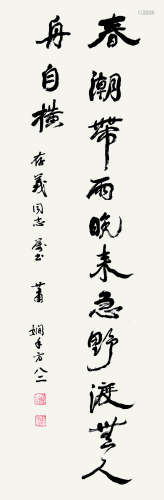 春潮帶雨晚来急野渡無人
舟自橫
存義同志屬書
蕭嫻年方八二